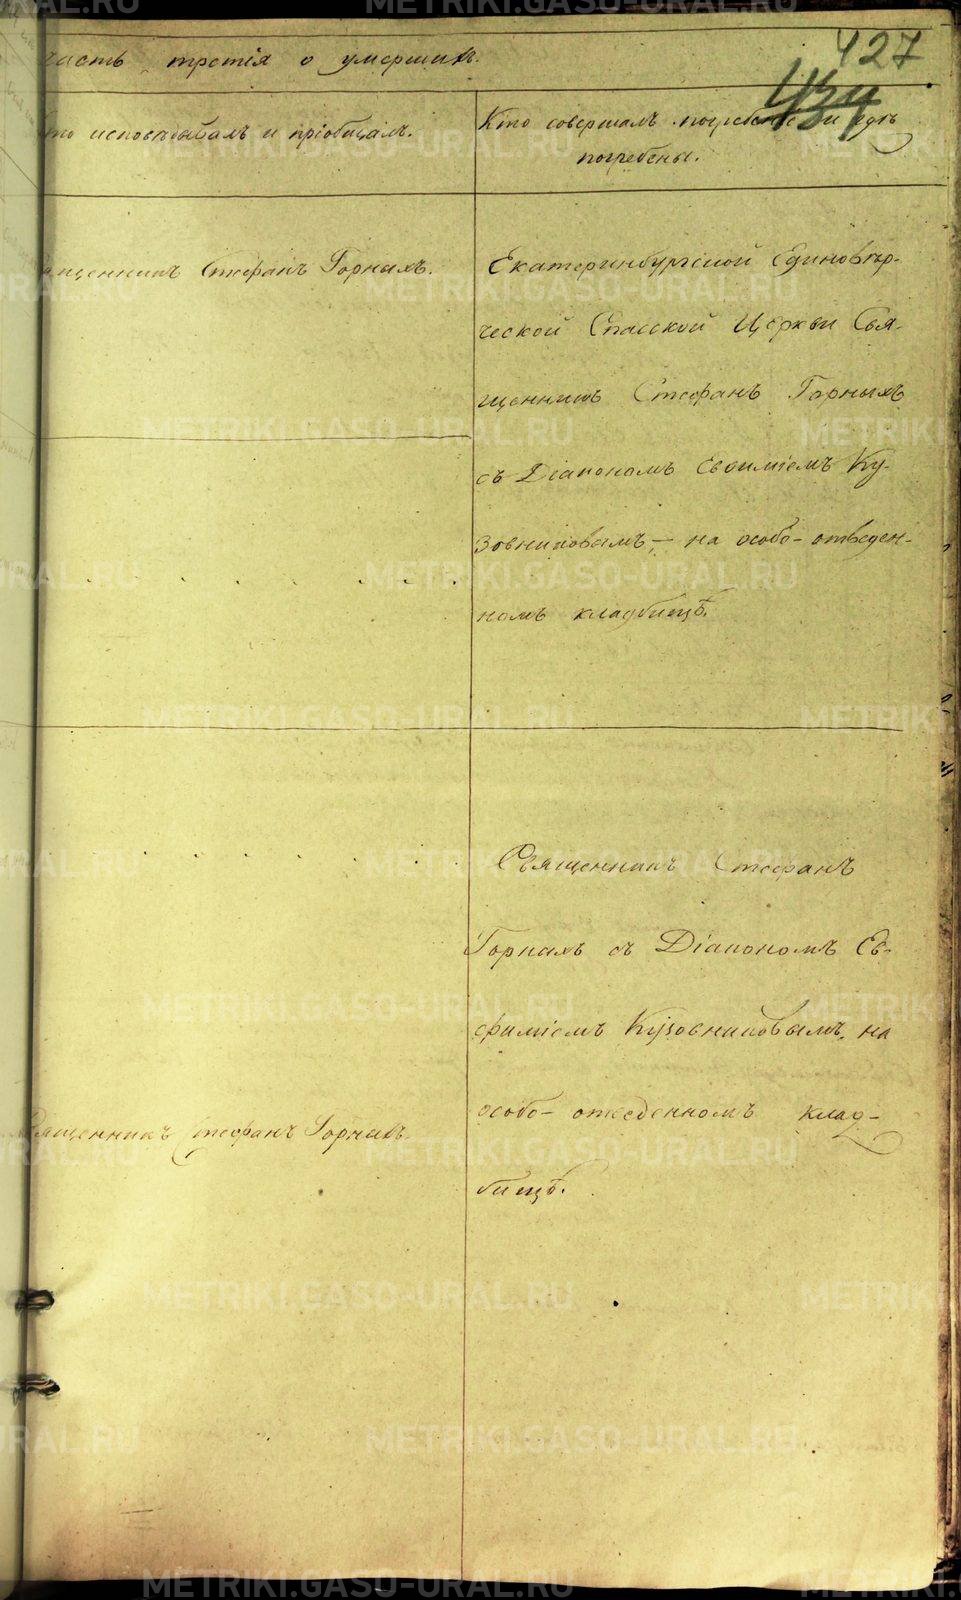 427
434
часть третія о умершихъ.
то исповѣдывалъ и пріобщалъ.
Кто совершалъ погребеніе и гдѣ
погребены.
ященникъ Стефанъ Горныхъ.
Екатеринбургской Единовѣр-
ческой Спасской Церкви Свя-
щенникъ Стефанъ Горныхъ
съ Діакономъ Евѳиміемъ Ку-
зовниковымъ, – на особо-отведен-
номъ кладбищѣ.
Священникъ Стефанъ
Горныхъ съ Діакономъ Ев-
фиміемъ Кузовниковымъ, на
особо-отведенномъ клад-
бищѣ.
Священникъ Стефанъ Горныхъ.
METRIKI.GASO-URAL.RU